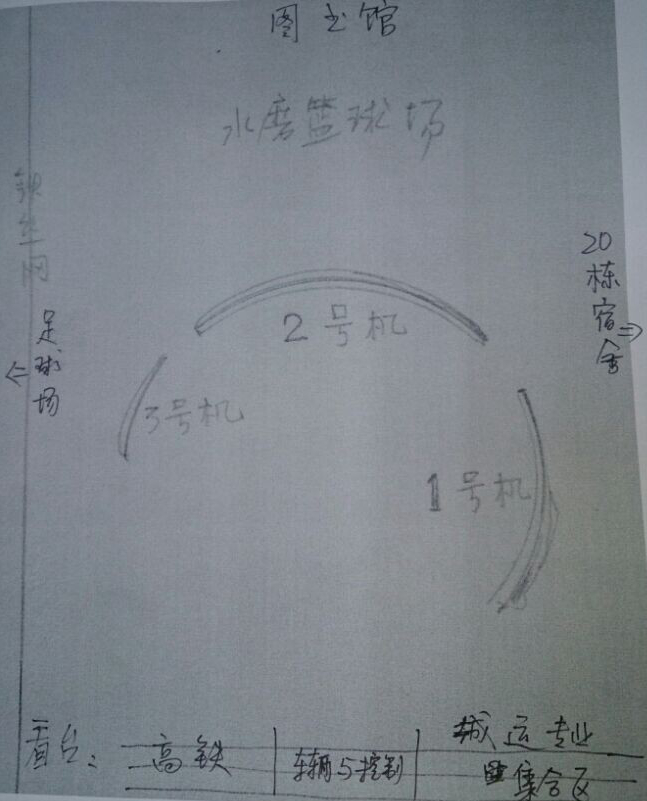 图书馆
水磨篮球场
铁丝网
20栋宿舍
足球场
2号机
3号机
1号机
看台：
高铁
车辆与控制
城运专业
集合区